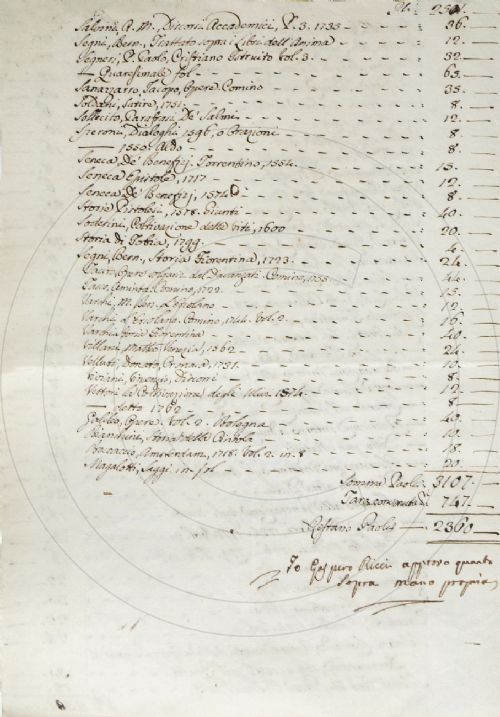 Salvini, A. M. Discorsi Accademici, P. 3. 1733 - 36.
Segni, Bern, Trattato sopra i Libri dell'Anima - 12.
Segneri, P. Paolo, Cristiano Istruito Vol. 3. - 32.
— Quaresimale fol - 63.
Sanazzaro, Jacopo, Opere Comino - 35.
Soldani, Satire, 1751. - 8.
De' Salvini - 12.
Speroni, Dialoghi 1596, o Orazioni - 8.
— 1550. Aldo - 8.
Seneca, de' Benefizj. Torrentino, 1554. - 15.
Seneca Epistole, 1717 - 12.
Seneca, de' Benefizj, 1574 - 8.
Storie Pistolesi, 1578. Giunti - 40.
Soderini, Coltivazione delle Viti, 1600 - 20.
Storia di 1799 - 4.
Segni, Bern, Storia Fiorentina, 1723. - 24.
Tacito, Opere del Davanzati. Comino, - 44.
Tasso, Aminta, Comino, 1722. - 15.
Varchi, M. Ben. L'Ercolano - 12.
Varchi, L'Ercolano. Comino, 1744. Vol. 2. - 16.
Varchi Storia Fiorentina - 40.
Villani, Matteo Venezia, 1562 - 24.
Velluti, Donato, Cronica, 1731. - 10.
Viviani, Vincenzio, - 8.
Vettori La Coltivazione degli Ulivi 1574. - 12.
— detto 1762 - 8.
Galileo, Opere Vol. 2. Bologna - 40.
Bianchini, Storia della - 10.
Amsterdam, 1718. Vol. 2. in 8 - 18.
Magalotti, Saggi in fol - 20.
Somma Paoli 3107.
Tara 747.
Restano Paoli — 2360
Io Gaspero Ricci approvo quanto
sopra mano propria